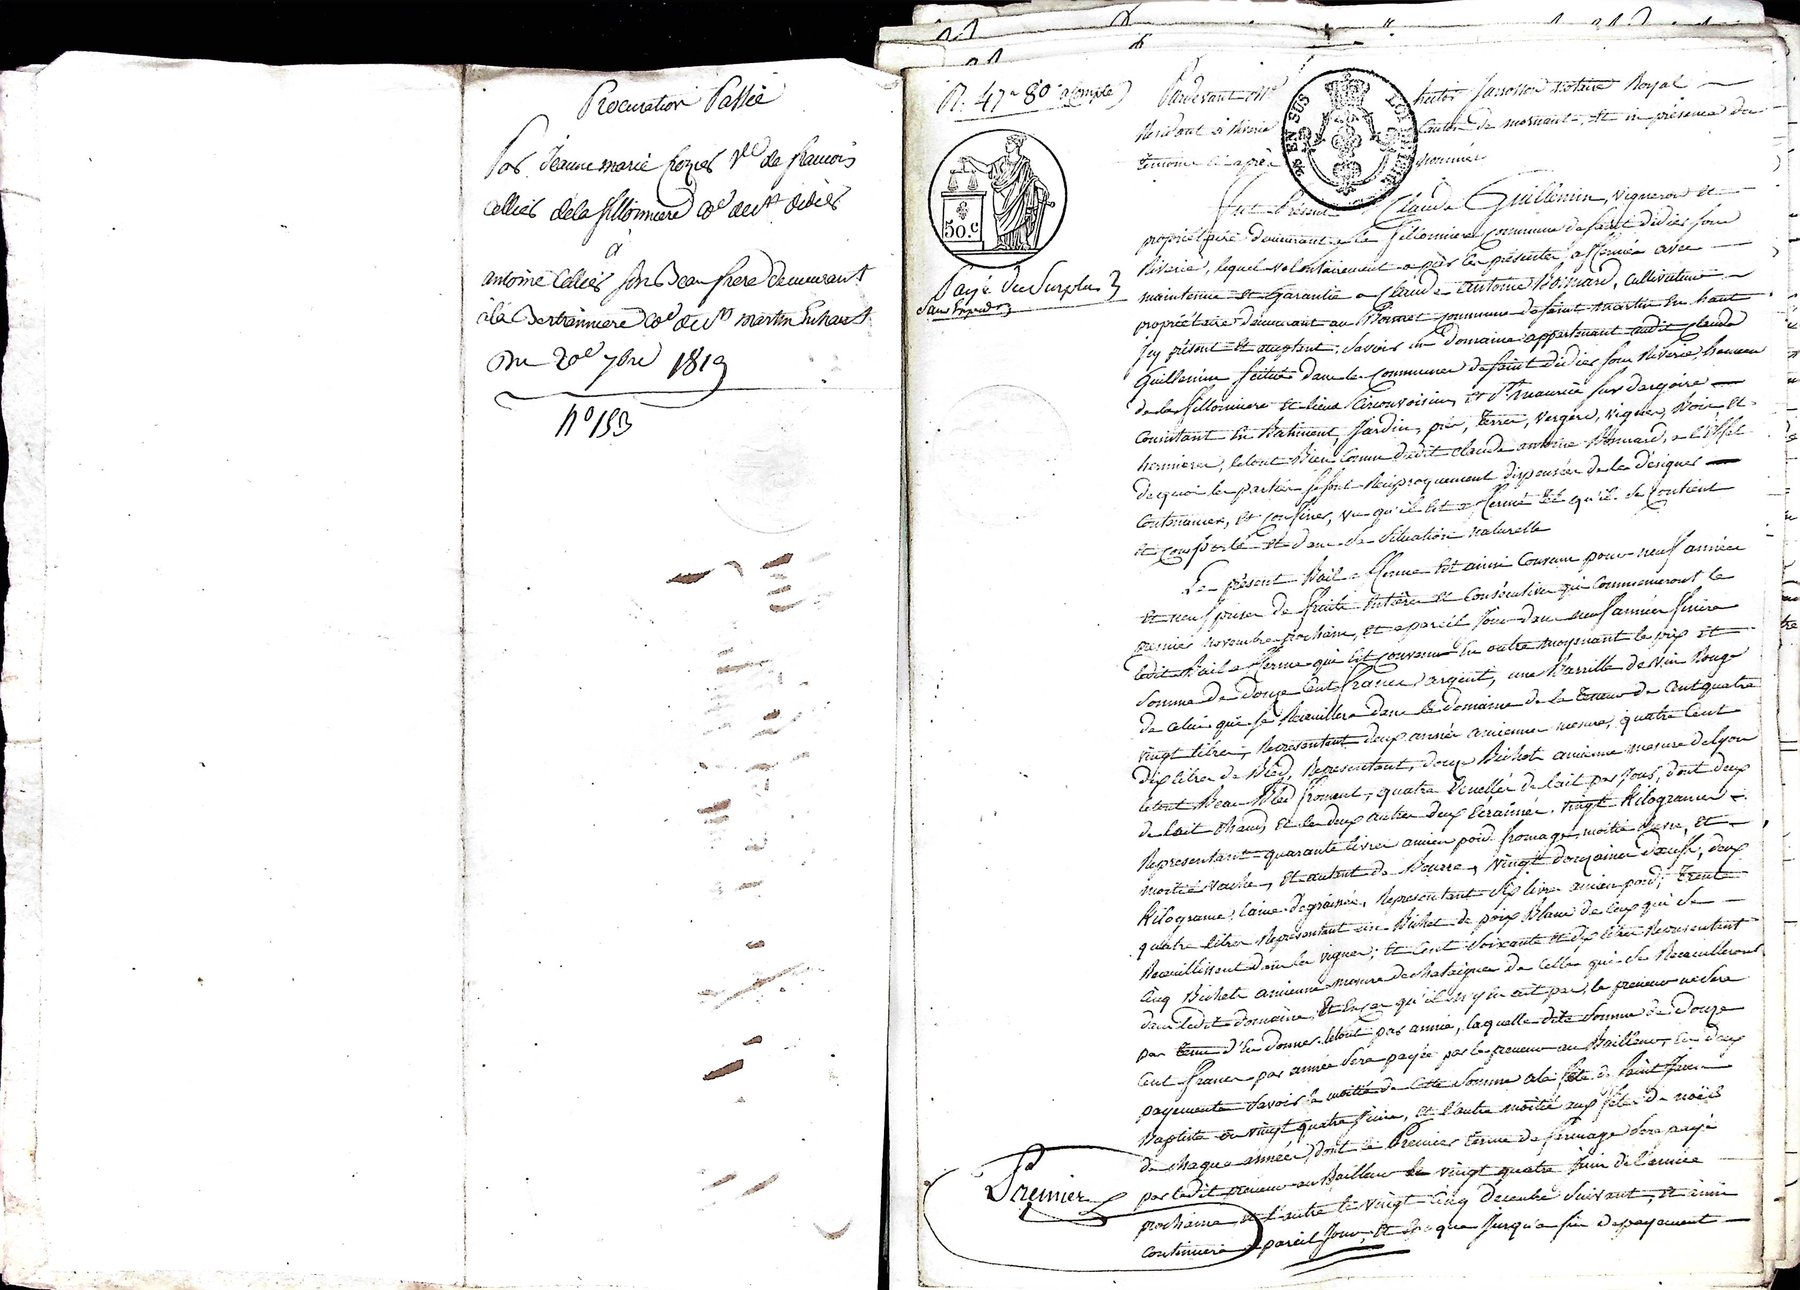 Procuration Passée
Par Jeanne marie Crozier Ve de francois
Cellier de la fillonniere Cne de St didier
à
antoine Cellier son Beau frere demeurant
à la Bertranniere Cne de St martin Enhaut
Du 20e 7bre 1819
no 153
R. 47 80 a Compte
Pardevant Me hector notaire Royal
Résident à Riverie Canton de mornant, et en présence des
témoins ci après nommés
50.c
EN SUS
Payé du Surplus
Fut Présent Claude Guillemin, vigneron et
propriétaire demeurant a la fillonniere Commune de saint didier sous
Riverie, lequel volontairement a par les présentes affermé avec
maintenue et Garantie a Claude Antoine Bonnard, Cultivateur
propriétaire demeurant au Commune de saint martin En haut
Icy présent et acceptant, Savoir un Domaine appartenant audit Claude
Guillemin Scitué dans les Communes de saint didier sous Riverie, hameau
de la fillonniere et lieux Circonvoisins, et St maurice sur dargoire
Consistant En Batiment, Jardin, pré, terres, vergers, vignes, Bois et
hermieres, letout Bien Connu dudit Claude antoine Bonnard, a l'Effet
dequoi les parties se sont Réciproquement dispensées de la désigner
Contenances, et Confines, vu qu'il Est affermé tel qu'il se Contient
et Comporte et dans sa Situation naturelle
Le présent Bail a fferme Est ainsi Convenu pour neuf années
et neuf prises de fruits Entières et Consécutives qui Commenceront le
premier novembre prochain, et a pareil Jour dans neuf années finira
ledit Bail a fferme qui Est Convenu En outre moyennant le prix et
Somme de douze Cent francs d'argent, une Barrille de vin Rouge
de Celui qui se Receuillera dans le domaine de la teneur de Cent quatre
vingt litres, Représentant deux année ancienne mesure, quatre Cent
dix litres de Bled, Représentant, douze Bichets ancienne mesure de lyon
letout Beau Bled froment, quatre de lait par Jour, dont deux
de lait Chaud, et les deux autres deux Ecraimée. vingt Kilogrames
Représentant quarante livres ancien poid fromage, moitié et
moitié vache, et autant de Beurre, vingt douzaines d'oeufs, deux
Kilograme laine degraissée, Représentant six livres ancien poid; trente
quatre litres Représentant un Bichet de poix Blanc de Ceux qui se
Receuillissent dans les vignes; et Cent Soixante et dix litres Représentant
Cinq Bichets ancienne mesure de chataignes de Celles qui se Receuilleront
dans ledit domaine, Et En Cas qu'il n'y En eut pas, le preneur ne sera
pas tenu d'En donner. letout par année, laquelle dite Somme de Douze
Cent francs par année sera payée par le preneur au Bailleur, En deux
payements Savoir la moitié de Cette Somme a la fête de saint Jean
Baptiste du vingt quatre Juin, et l'autre moitié aux fêtes de noëls
de chaque année, dont le Premier terme de fermage sera payé
par ledit preneur au Bailleur le vingt quatre Juin de l'année
prochaine et l'autre le vingt Cinq decembre Suivant, et ainsi
Continuera a pareil Jour, et Epoque Jusqu'a fin de payement
Premier